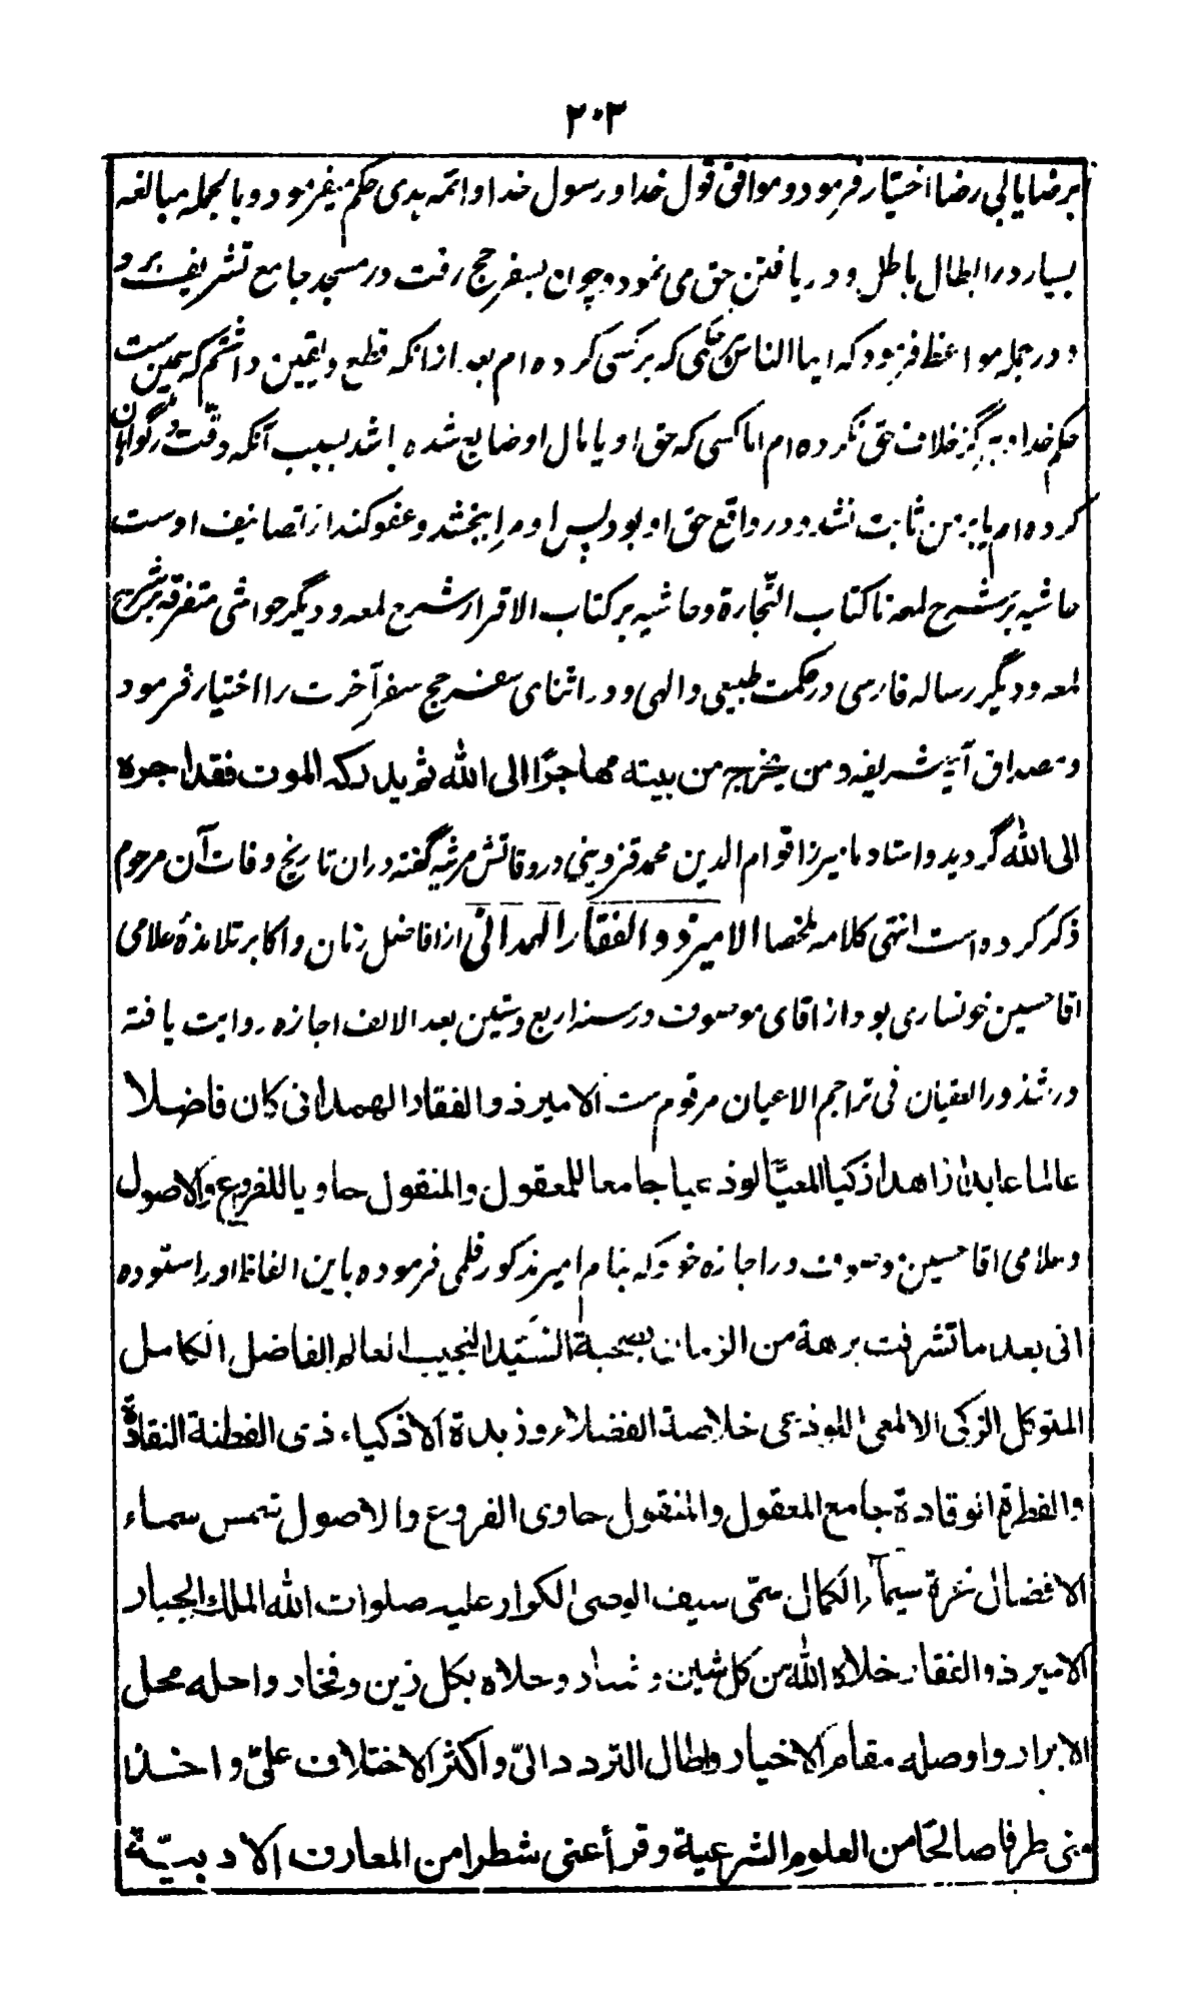 ٢٠٣
برضایالٰہی رضا اختیار فرمود و موافق قول خدا و رسول خدا و ائمہ ہدی حکم میفرمود و بالجملہ مبالغہ
بسیار در ابطال باطل و دریافتن حق می نمود و چون بسفر حج رفت در مسجد جامع تشریف برد و
و در جملہ مواعظ فرمود کہ ایہا الناس حکمی کہ بر کسی کردہ ام بعد ازانکہ قطع و یقین داشتم کہ ہمین ست
حکم خدا و ہرگز خلاف حق نکردہ ام اما کسی کہ حق او یا مال او ضایع شدہ باشد بسبب آنکہ دقت در گواہان
کردہ ام یا بر من ثابت نشد و در واقع حق او بود پس او مرا ببخشد و عفو کند از تصانیف اوست
حاشیہ بر شرح لمعہ تا کتاب التجارة و حاشیہ بر کتاب الاقرار شرح لمعہ و دیگر حواشی متفرقہ بر شرح
لمعہ و دیگر رسالہ فارسی در حکمت طبیعی و الہی و در اثنای سفر حج سفر آخرت را اختیار فرمود
و مصداق آیۂ شریفہ و من یخرج من بیته مهاجرًا الی الله ثم یدرکه الموت فقد اجره
الی الله گردید و استاد ما میرزا قوام الدین محمد قزوینی در وفاتش مرثیہ گفتہ دران تاریخ وفات آن مرحوم
ذکر کردہ است انتہی کلامہ ملخصا الامیر ذو الفقار الہمدانی از افاضل زمان و اکابر تلامذۂ علامی
اقا حسین خونساری بود از اقای موصوف در سنہ اربع و ستین بعد الالف اجازہ روایت یافتہ
در شذور العقیان فی تراجم الاعیان مرقوم ست الامیر ذو الفقار الهمدانی کان فاضلا
عالما عابدا زاهدا زکیا المعیّا لوذعیا جامعا للمعقول والمنقول حاویا للفروع والاصول
و علامی اقا حسین موصوف در اجازہ خود کہ بنام امیر مذکور قلمی فرمودہ باین الفاظ او را ستودہ
انی بعد ما تشرفت برهة من الزمان بصحبة السّید النجیب العالم الفاضل الکامل
المتوکل الزکی الالمعی اللوذعی خلاصة الفضلاء وزبدة الاذکیاء ذی الفطنة النقادة
والفطرة الوقادة جامع المعقول والمنقول حاوی الفروع والاصول شمس سماء
الافضال غرة سیماء الکمال سمّی سیف الوصی الکرار علیه صلوات الله الملك الجبار
الامیر ذو الفقار خلاه الله من کل شین و شنار وحلاه بکل زین وفخار واحله محل
الابرار واوصله مقام الاخیار واطال التردد الیّ واکثر الاختلاف علیّ واخذ
منی طرفا صالحًا من العلوم الشرعیة وقرأ عنی شطرا من المعارف الادبیّة